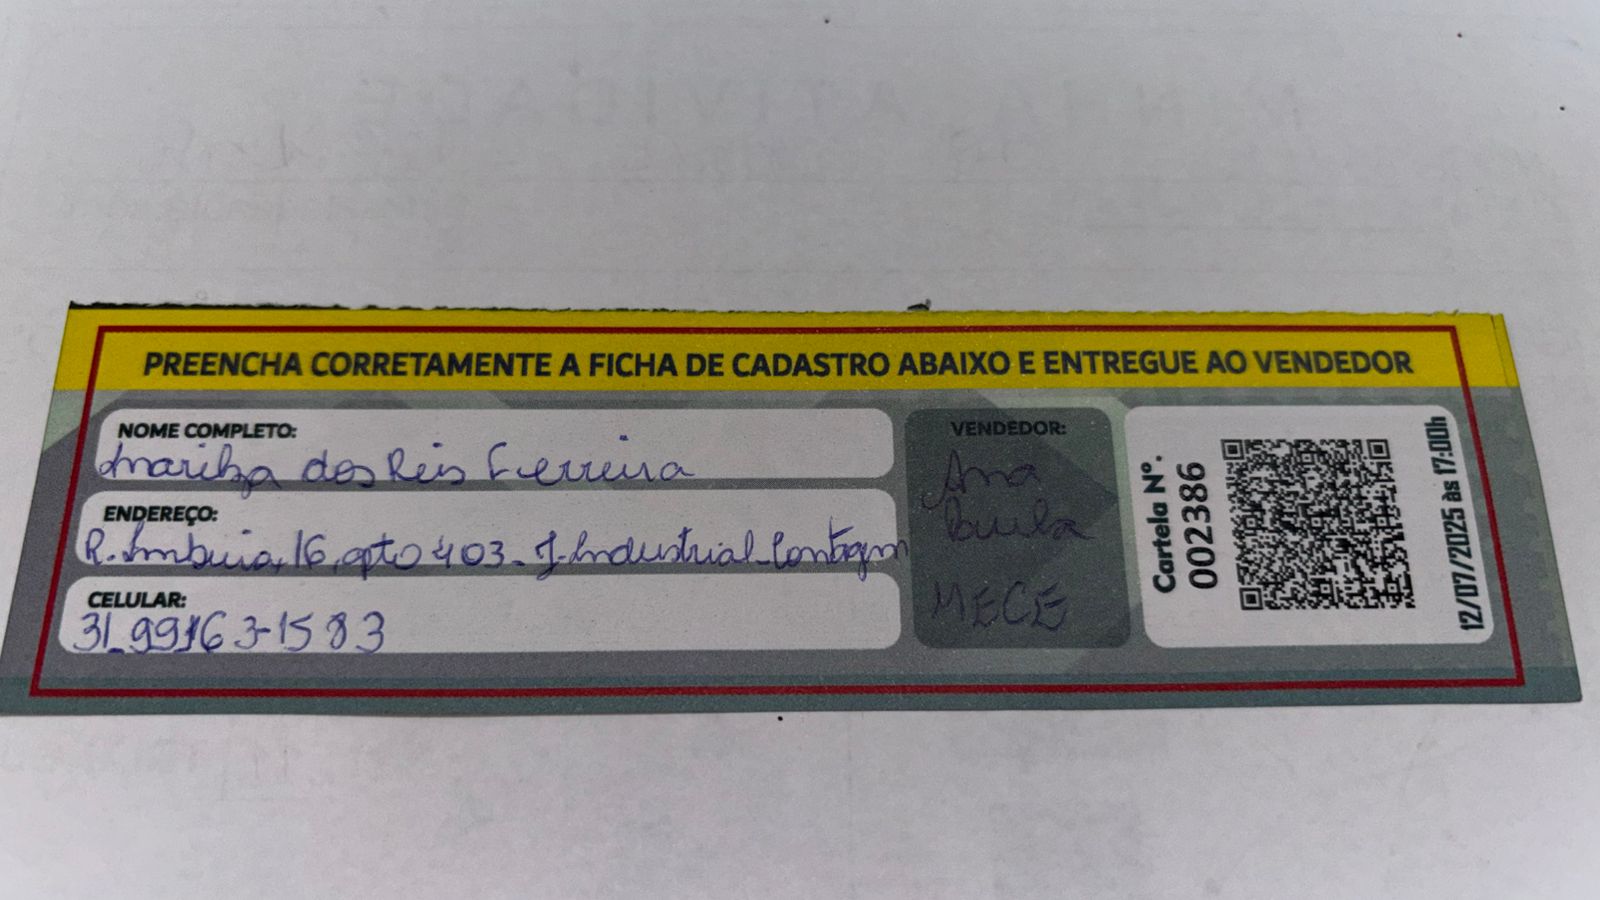 PREENCHA CORRETAMENTE A FICHA DE CADASTRO ABAIXO E ENTREGUE AO VENDEDOR
NOME COMPLETO:
Mariza dos Reis Ferreira
ENDEREÇO:
R. Imbuia, 16, apto 403 - J. Industrial - Contagem
CELULAR:
31_99163-1583
VENDEDOR:
Ana
Paula
MECE
Cartela Nº.
002386
12/07/2025 às 17:00h